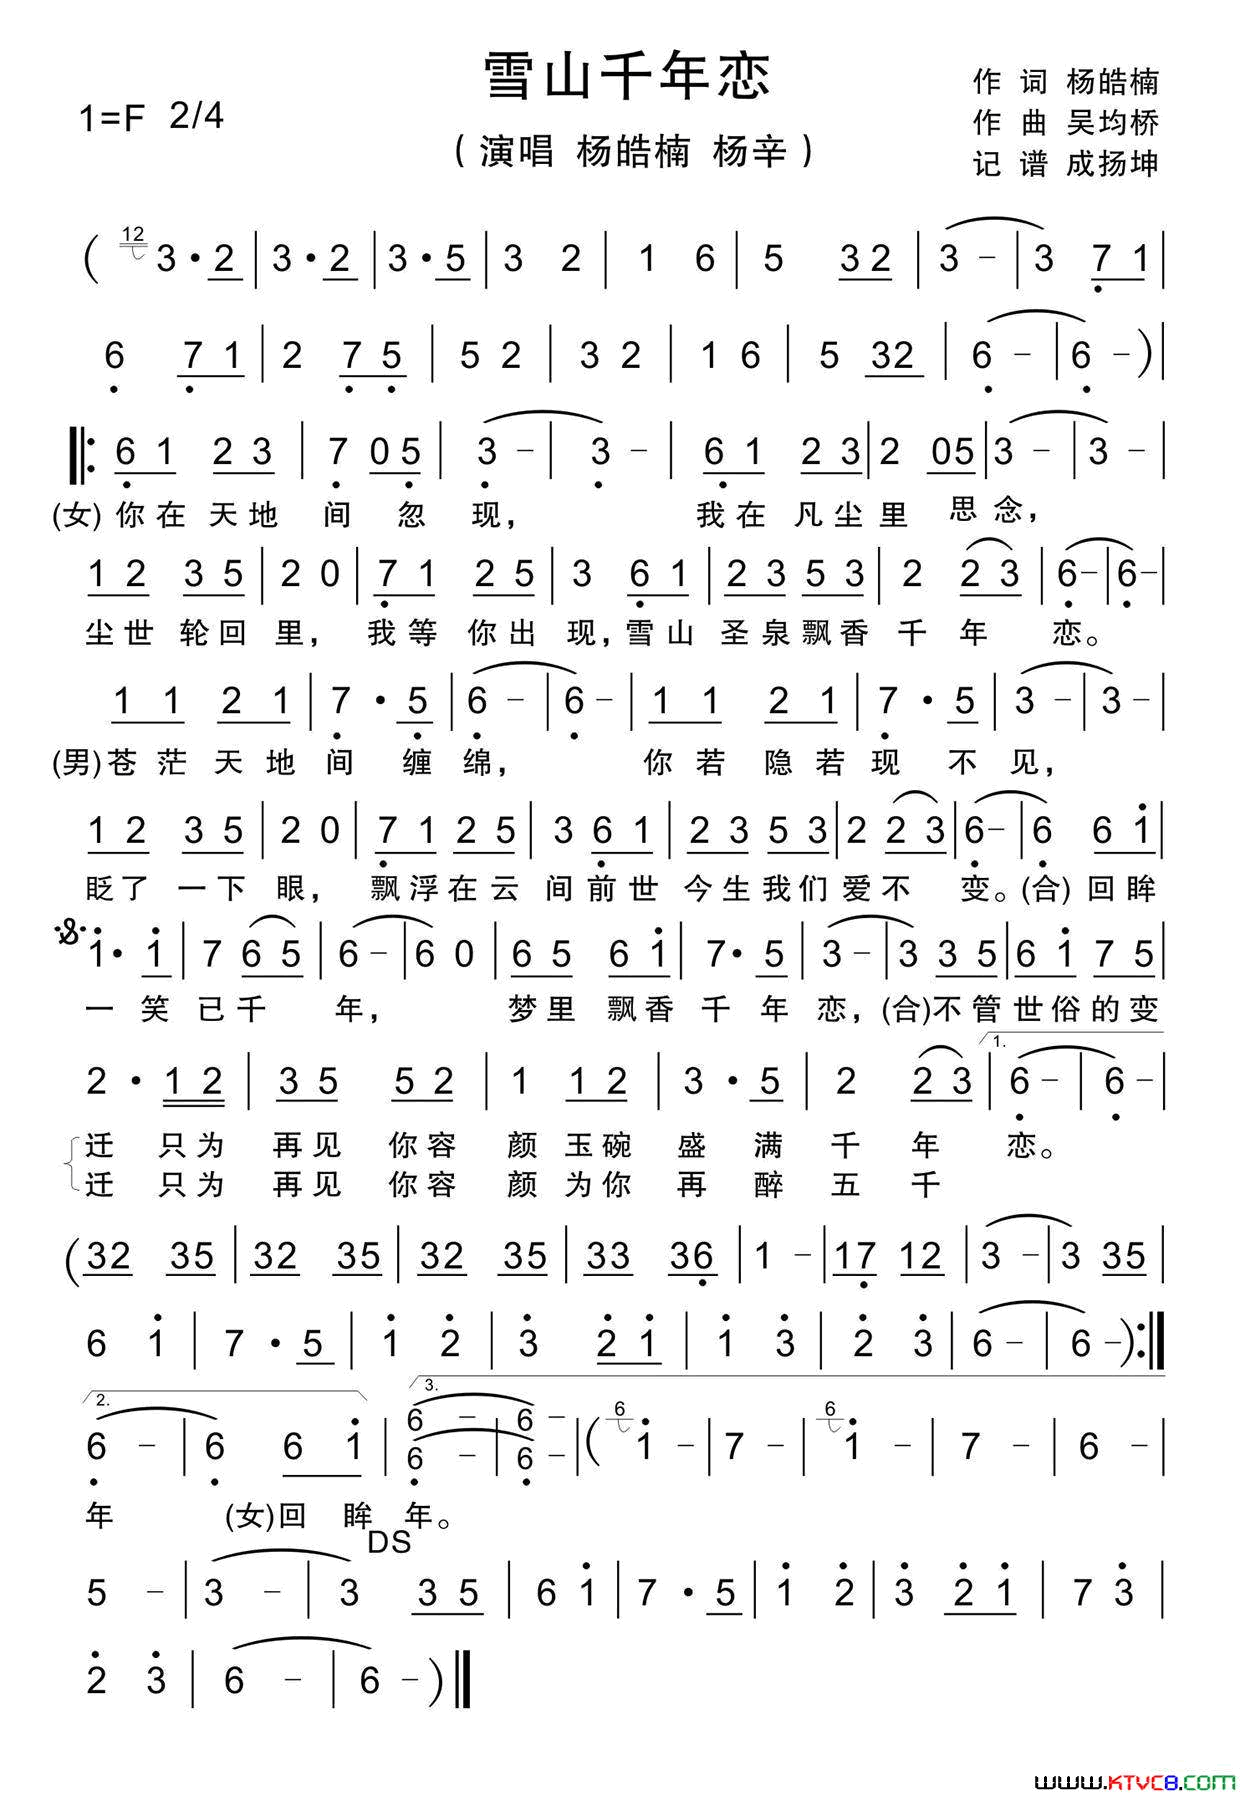 雪山千年恋
1=F 2/4
(演唱 杨皓楠 杨辛)
作 词 杨皓楠
作 曲 吴均桥
记 谱 成扬坤
( 12 3·2 | 3·2 | 3·5 | 3 2 | 1 6 | 5 32 | 3 - | 3 71 |
6 71 | 2 75 | 5 2 | 3 2 | 1 6 | 5 32 | 6 - | 6 - ) |
‖: 61 23 | 7 05 | 3 - | 3 - | 61 23 | 2 05 | 3 - | 3 - |
(女)你在 天地 间 忽 现, 我在 凡尘里 思念,
12 35 | 2 0 | 71 25 | 3 61 | 23 53 | 2 23 | 6- | 6- |
尘世 轮回 里, 我等 你出 现,雪山 圣泉飘香 千 年 恋。
11 21 | 7 · 5 | 6 - | 6 - | 11 21 | 7 · 5 | 3 - | 3 - |
(男)苍茫 天地 间 缠 绵, 你若 隐若现 不见,
12 35 | 2 0 | 71 25 | 3 61 | 23 53 | 2 23 | 6- | 6 6i |
眨了 一下 眼, 飘浮在云 间前世 今生我们 爱不 变。(合)回眸
i· i | 7 65 | 6- | 6 0 | 65 6i | 7· 5 | 3- | 3 35 | 6i 75 |
一 笑 已千 年, 梦里 飘香 千 年 恋,(合)不管世俗的变
1.
2 · 12 | 35 52 | 1 12 | 3 · 5 | 2 23 | 6 - | 6 - |
迁 只为 再见 你容 颜 玉碗 盛 满 千 年 恋。
迁 只为 再见 你容 颜 为你 再 醉 五 千
(32 35 | 32 35 | 32 35 | 33 36 | 1 - | 17 12 | 3 - | 3 35 |
6 i | 7 · 5 | i 2 | 3 2i | i 3 | 2 3 | 6 - | 6 - ) :‖
2. 3.
6 - | 6 6i | 6 - | 6 - | ( 6 i - | 7 - | 6 i - | 7 - | 6 - |
6 - | 6 -
年 (女)回 眸 年。
DS
5 - | 3 - | 3 35 | 6 i | 7 · 5 | i 2 | 3 2i | 7 3 |
2 3 | 6 - | 6 - ) ‖
www.KTVC8.com